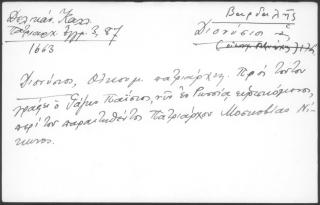 Δελικάν. Καλλ.
Πατριαρχ. ἔγγρ. 3, 87
1663
Βαρδαλῆς
Διονύσιος
Διονύσιος, Οἰκουμ. πατριάρχης. Πρὸς τοῦτον
γράφει ὁ Γάζης Παΐσιος, ἐν Ρωσσίᾳ εὑρισκόμενος,
περὶ τοῦ παραιτηθέντος Πατριάρχου Μοσχοβίας Νί-
κωνος.